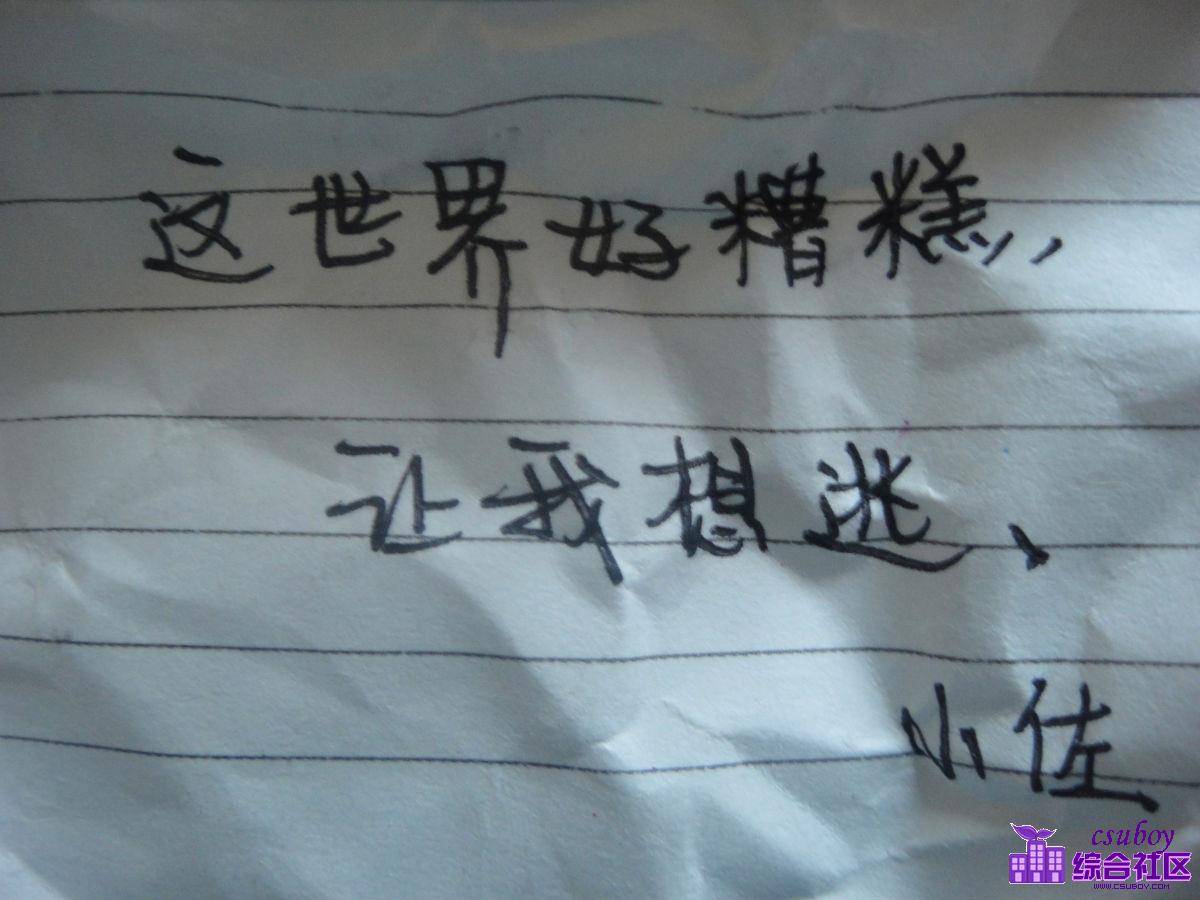 这世界好糟糕,,
让我想逃、
小佐
csuboy
综合社区
www.csuboy.com